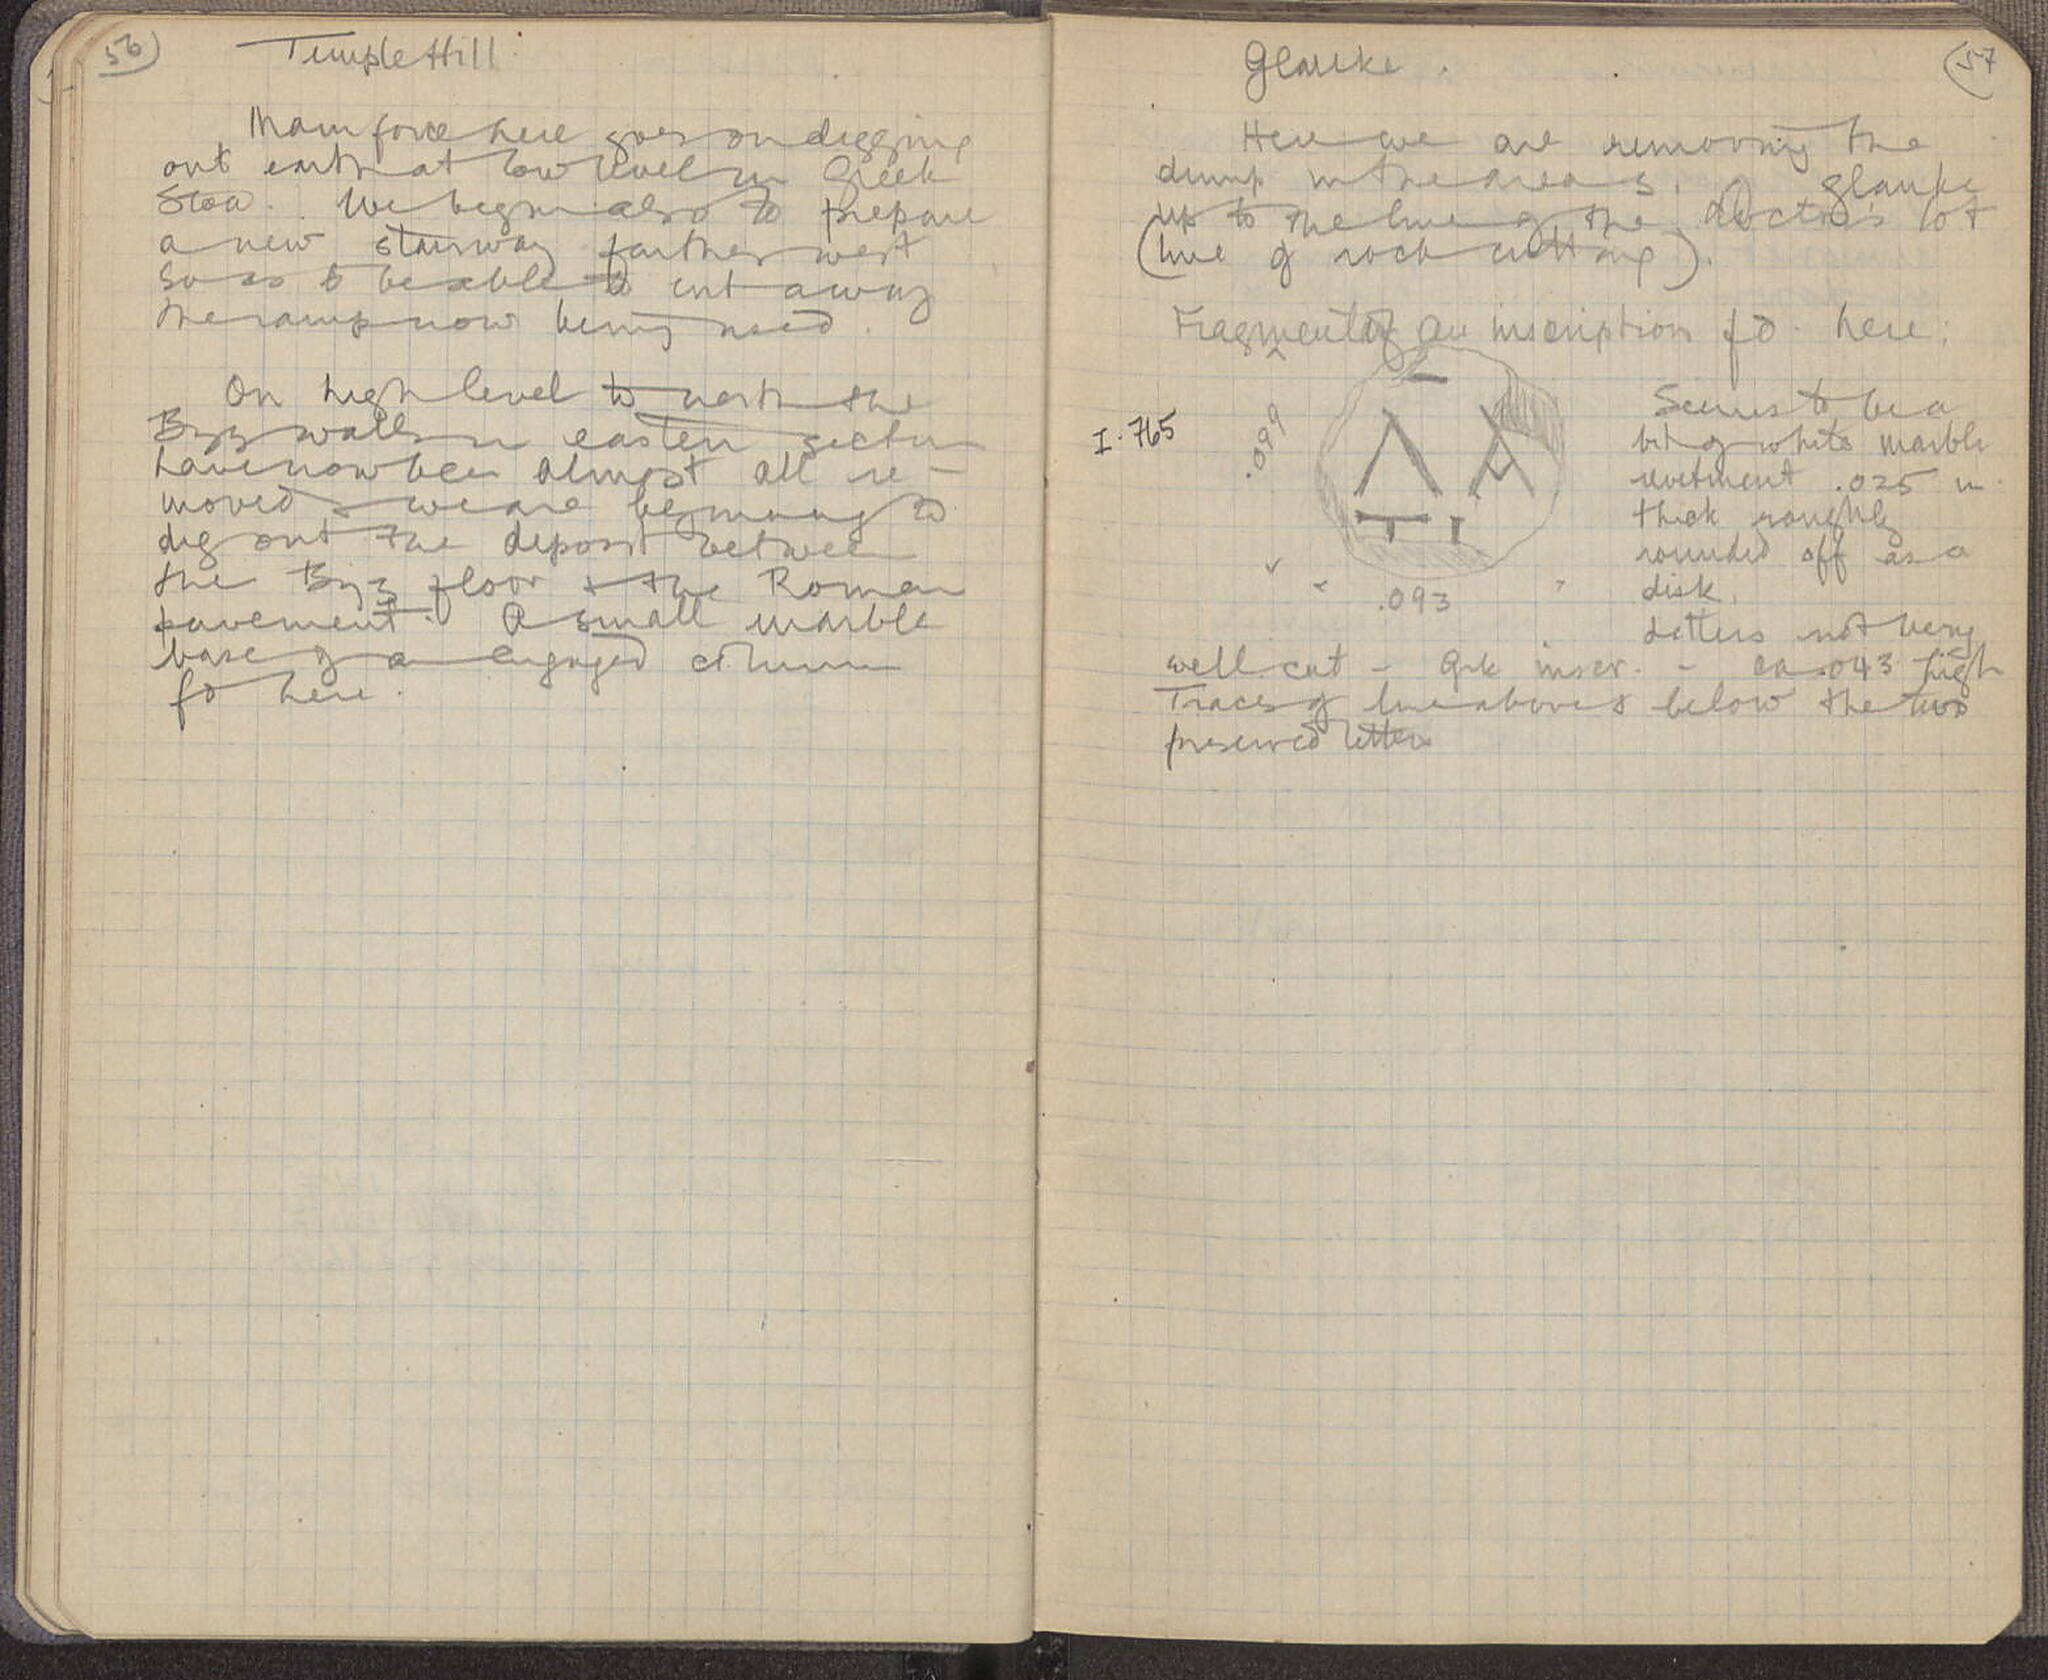 56
Temple Hill
Main force here goes on digging
out earth at low level in Greek
Stoa. We begin also to prepare
a new stairway farther west
so as to be able to cut away
the ramp now being used.
On high level to north the
Byz walls in eastern section
have now been almost all re-
moved & we are beginning to
dig out the deposit between
the Byz floor & the Roman
pavement. A small marble
base of an engaged column
fd here.
57
Glauke.
Here we are removing the
dump in the area S. Glauke
up to the line of the doctor's lot
(line of rock cutting).
Fragment of an inscription fd. here:
I-765
.099
Λ Α
.093
Seems to be a
bit of white marble
revetment .025 m.
thick roughly
rounded off as a
disk.
Letters not very
well cut - Grk inscr. - ca .043 high
Traces of line above & below the two
preserved letters